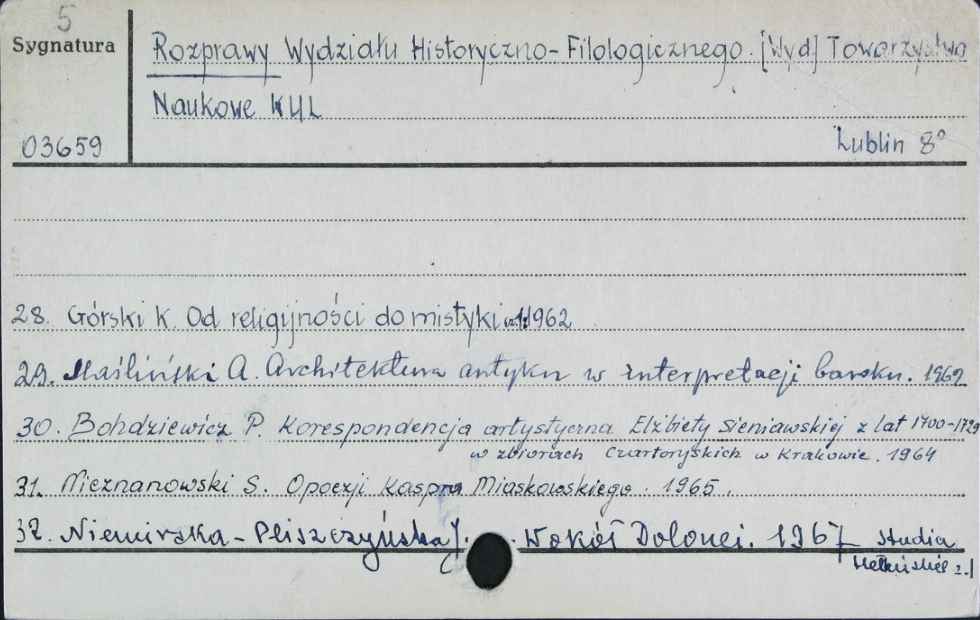 5
Sygnatura
Rozprawy Wydziału Historyczno-Filologicznego. [Wyd] Towarzystwo
Naukowe KUL
03659
Lublin 8°
28. Górski K. Od religijności do mistyki 1962
29. Maśliński A. Architektura antyku w interpretacji baroku. 1962
30. Bohdziewicz P. Korespondencja artystyczna Elżbiety Sieniawskiej z lat 1700-1729
w zbiorach Czartoryskich w Krakowie. 1964
31. Nieznanowski S. O poezji Kaspra Miaskowskiego. 1965.
32. Niemirska-Pliszczyńska J. Wokół Dolonei. 1967 studia